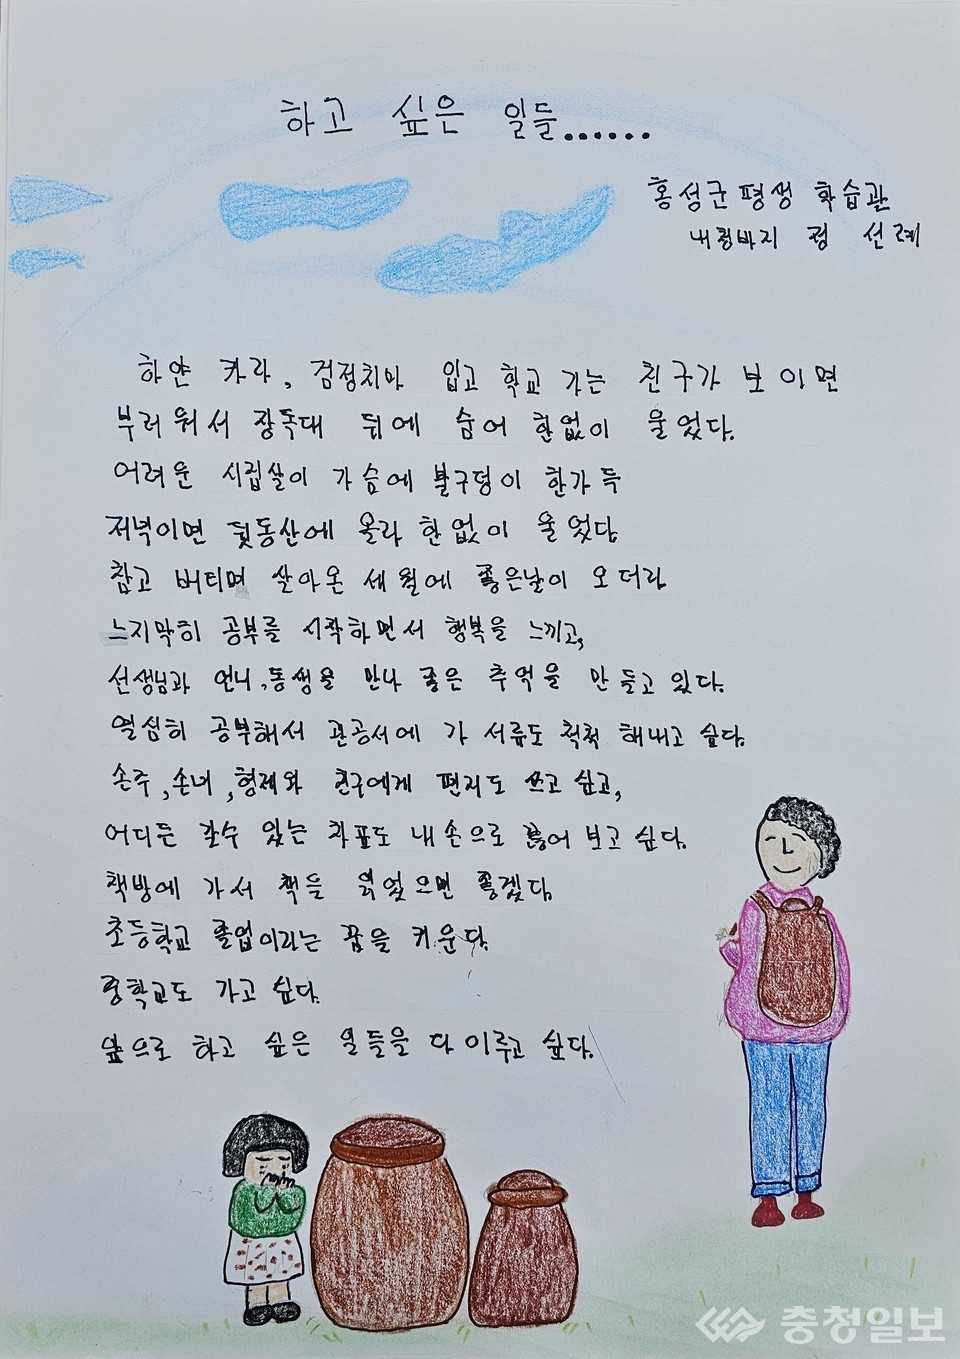 하고 싶은 일들......
홍성군 평생 학습관
정 선례
하얀 카라, 검정치마 입고 학교 가는 친구가 보이면
부러워서 장독대 뒤에 숨어 한없이 울었다.
어려운 시집살이 가슴에 불구덩이 한가득
저녁이면 뒷동산에 올라 한없이 울었다
참고 버티며 살아온 세월에 좋은날이 오더라
느지막히 공부를 시작하면서 행복을 느끼고,
선생님과 언니, 동생을 만나 좋은 추억을 만들고 있다.
열심히 공부해서 관공서에 가 서류도 척척 해내고 싶다.
손주, 손녀, 형제와 친구에게 편지도 쓰고 싶고,
어디든 갈수 있는 차표도 내손으로 끊어 보고 싶다.
책방에 가서 책을 읽었으면 좋겠다.
초등학교 졸업이라는 꿈을 키운다.
중학교도 가고 싶다.
앞으로 하고 싶은 일들을 다 이루고 싶다.
충청일보